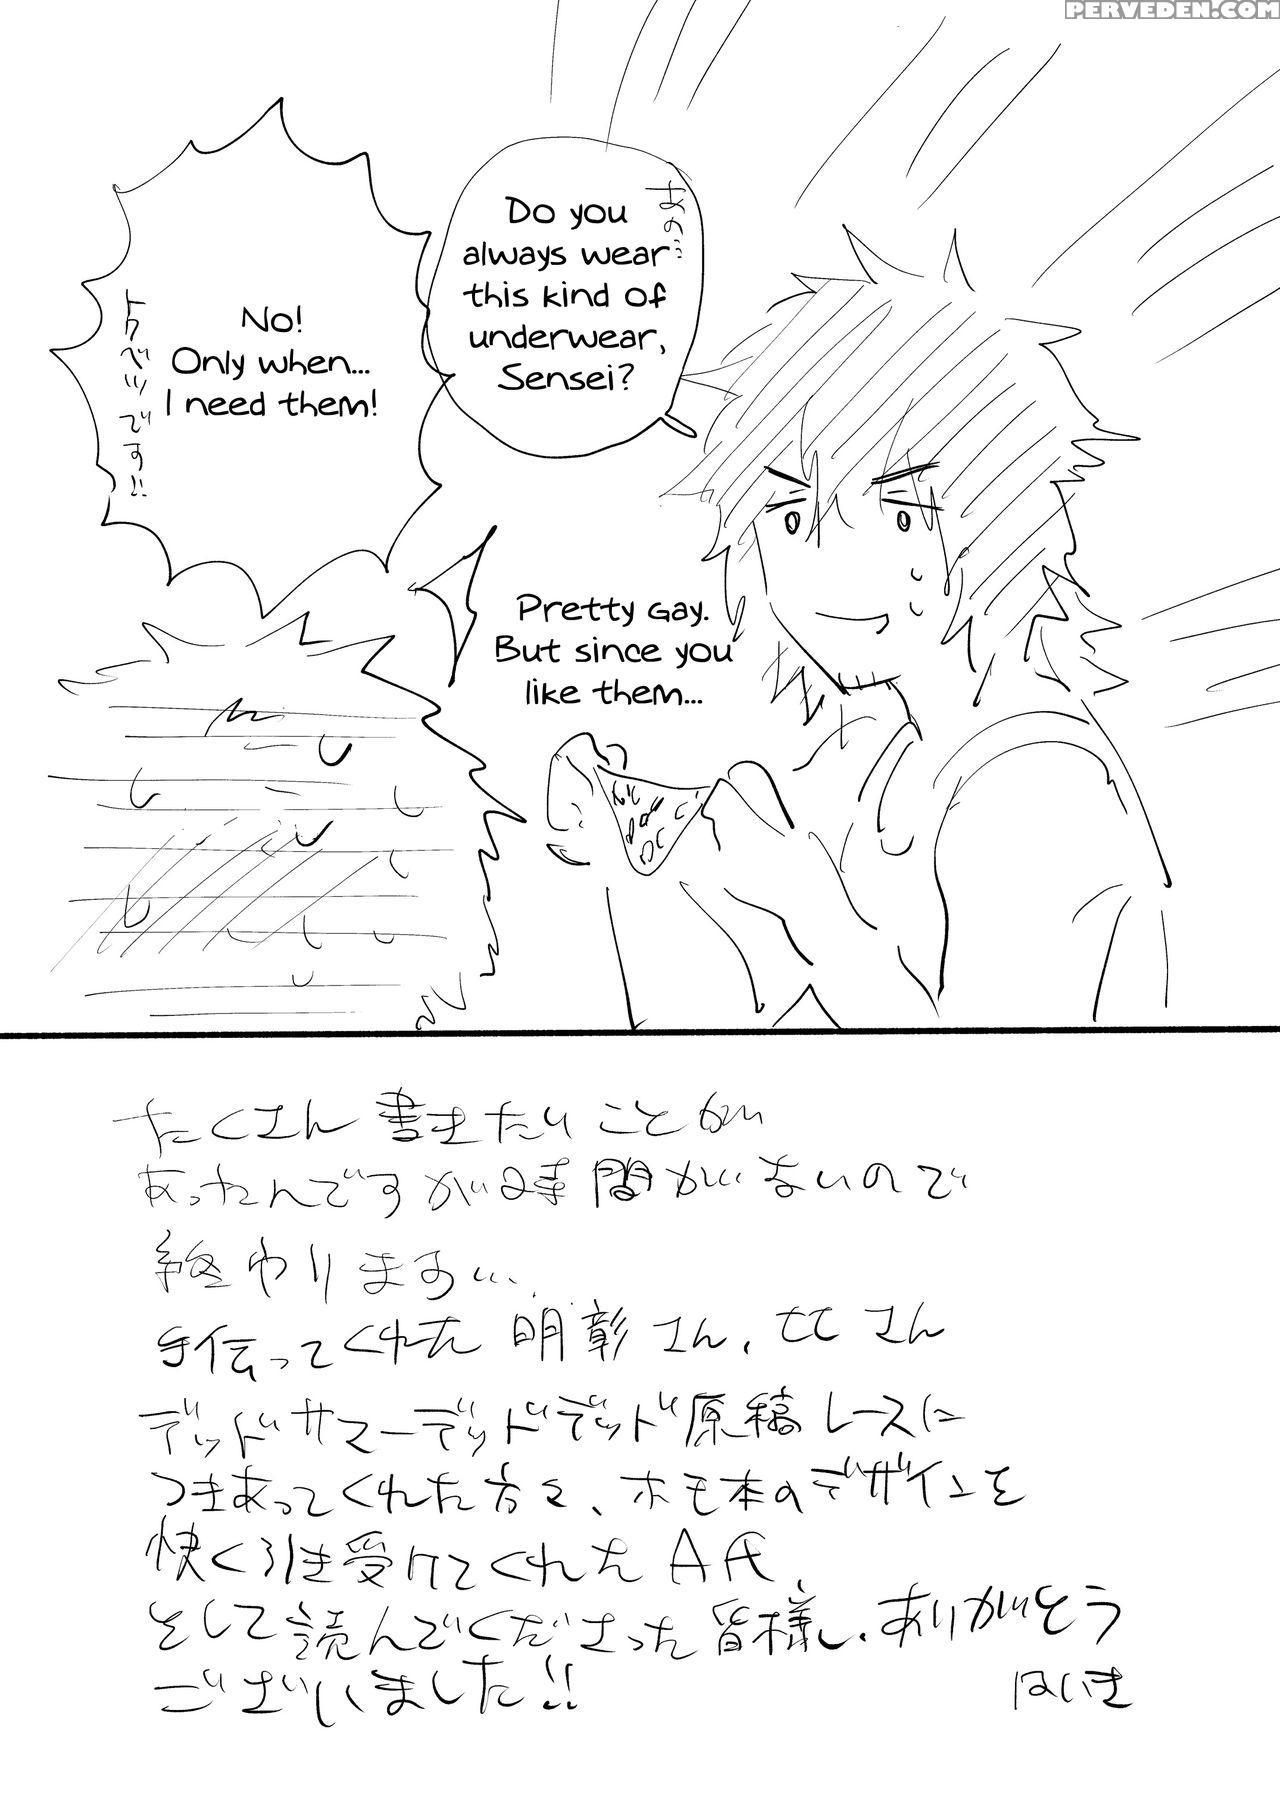 PERVEDEN.COM
あの…
Do you
always wear
this kind of
underwear,
Sensei?
No!
Only when...
I need them!
トクベツです!!
Pretty gay.
But since you
like them...
たくさん書きたいことが
あったんですが時間がないので
終わります…
手伝ってくれた明彰さん、ヒヒさん
デッドサマーデッドデッド原稿レースに
つきあってくれた方々、ホモ本のデザインを
快く引き受けてくれたA氏
そして読んでくださった皆様し、ありがとう
ございました!!
はいき